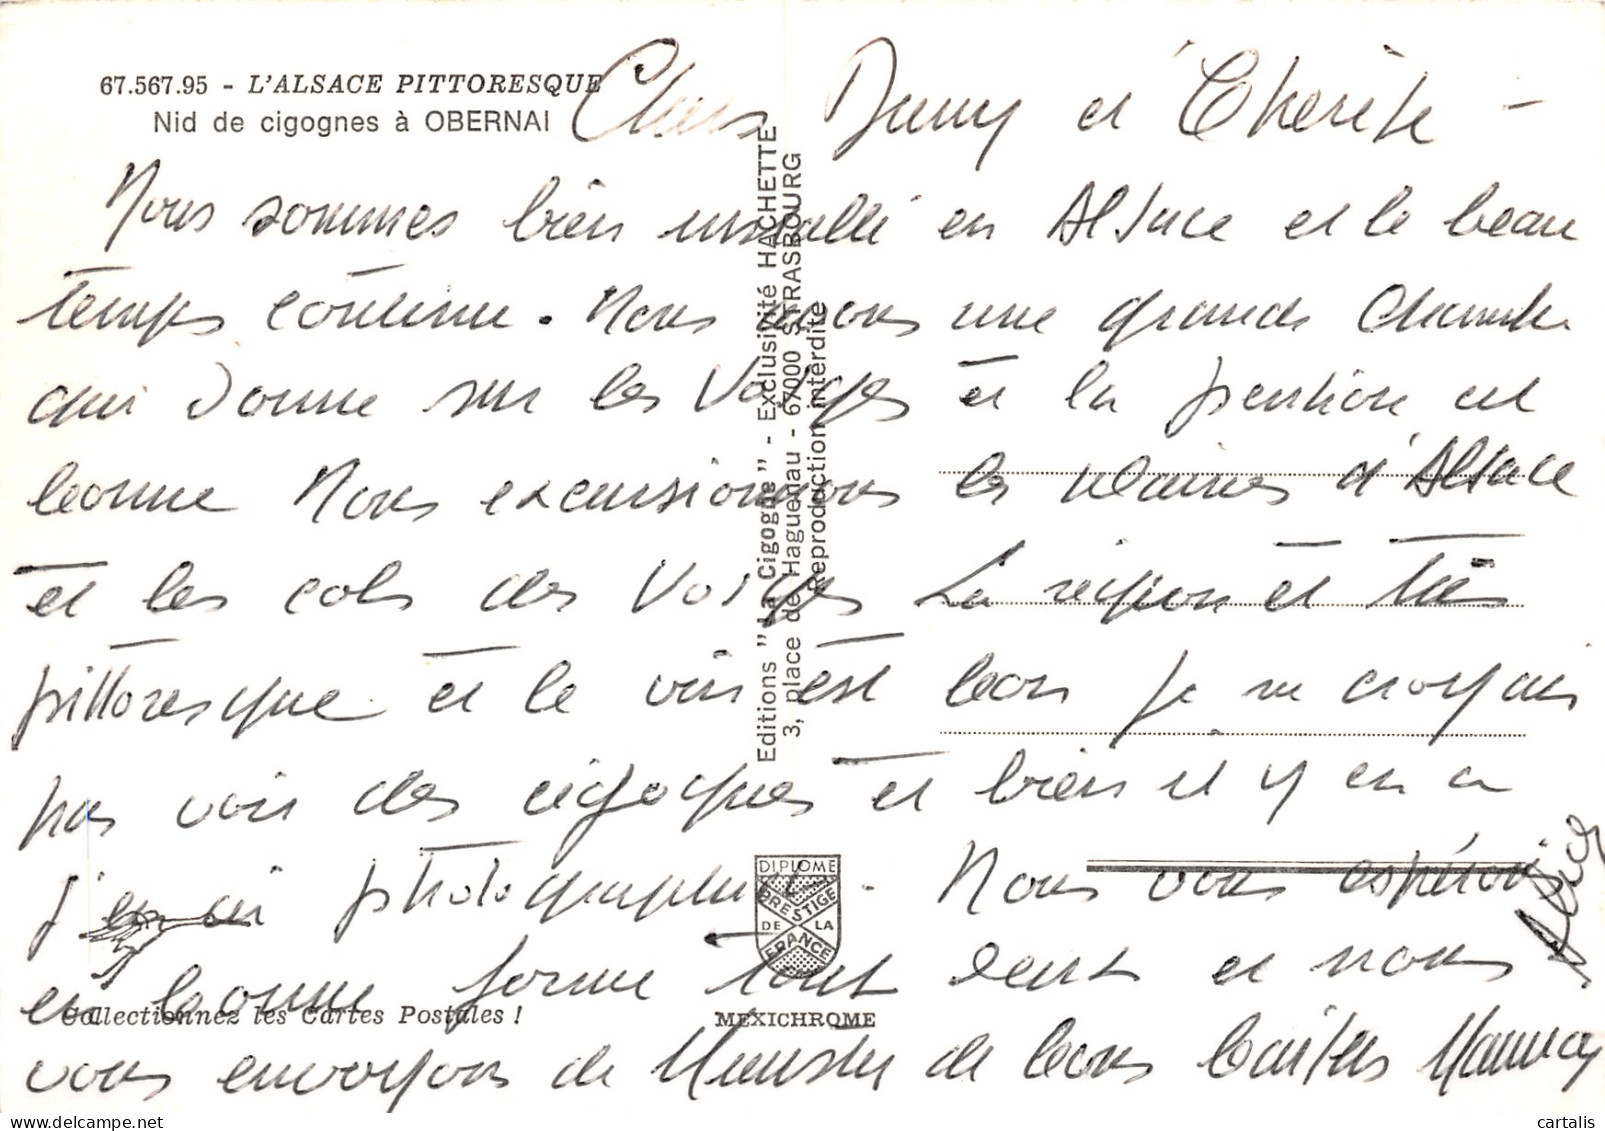 67.567.95 - L'ALSACE PITTORESQUE
Nid de cigognes à OBERNAI
Chers et
Nous sommes bien installé en Alsace et le beau
temps continue. Nous avons une grande chambre
qui donne sur les Vosges et la pension est
bonne Nous excursionnons les plaines d'Alsace
et les cols des Vosges La région est très
pittoresque et le vin est bon je ne croyais
pas voir des cigognes et bien il y en a
j'en ai photographié. Nous vous espérons
en bonne forme tout deux et nous
vous envoyons de Munster de bons baisers
Editions "La Cigogne" - Exclusivité HACHETTE
3, place de Haguenau - 67000 STRASBOURG
Reproduction interdite
DIPLOME
PRESTIGE
DE LA
FRANCE
Collectionnez les Cartes Postales !
MEXICHROME
cartalis